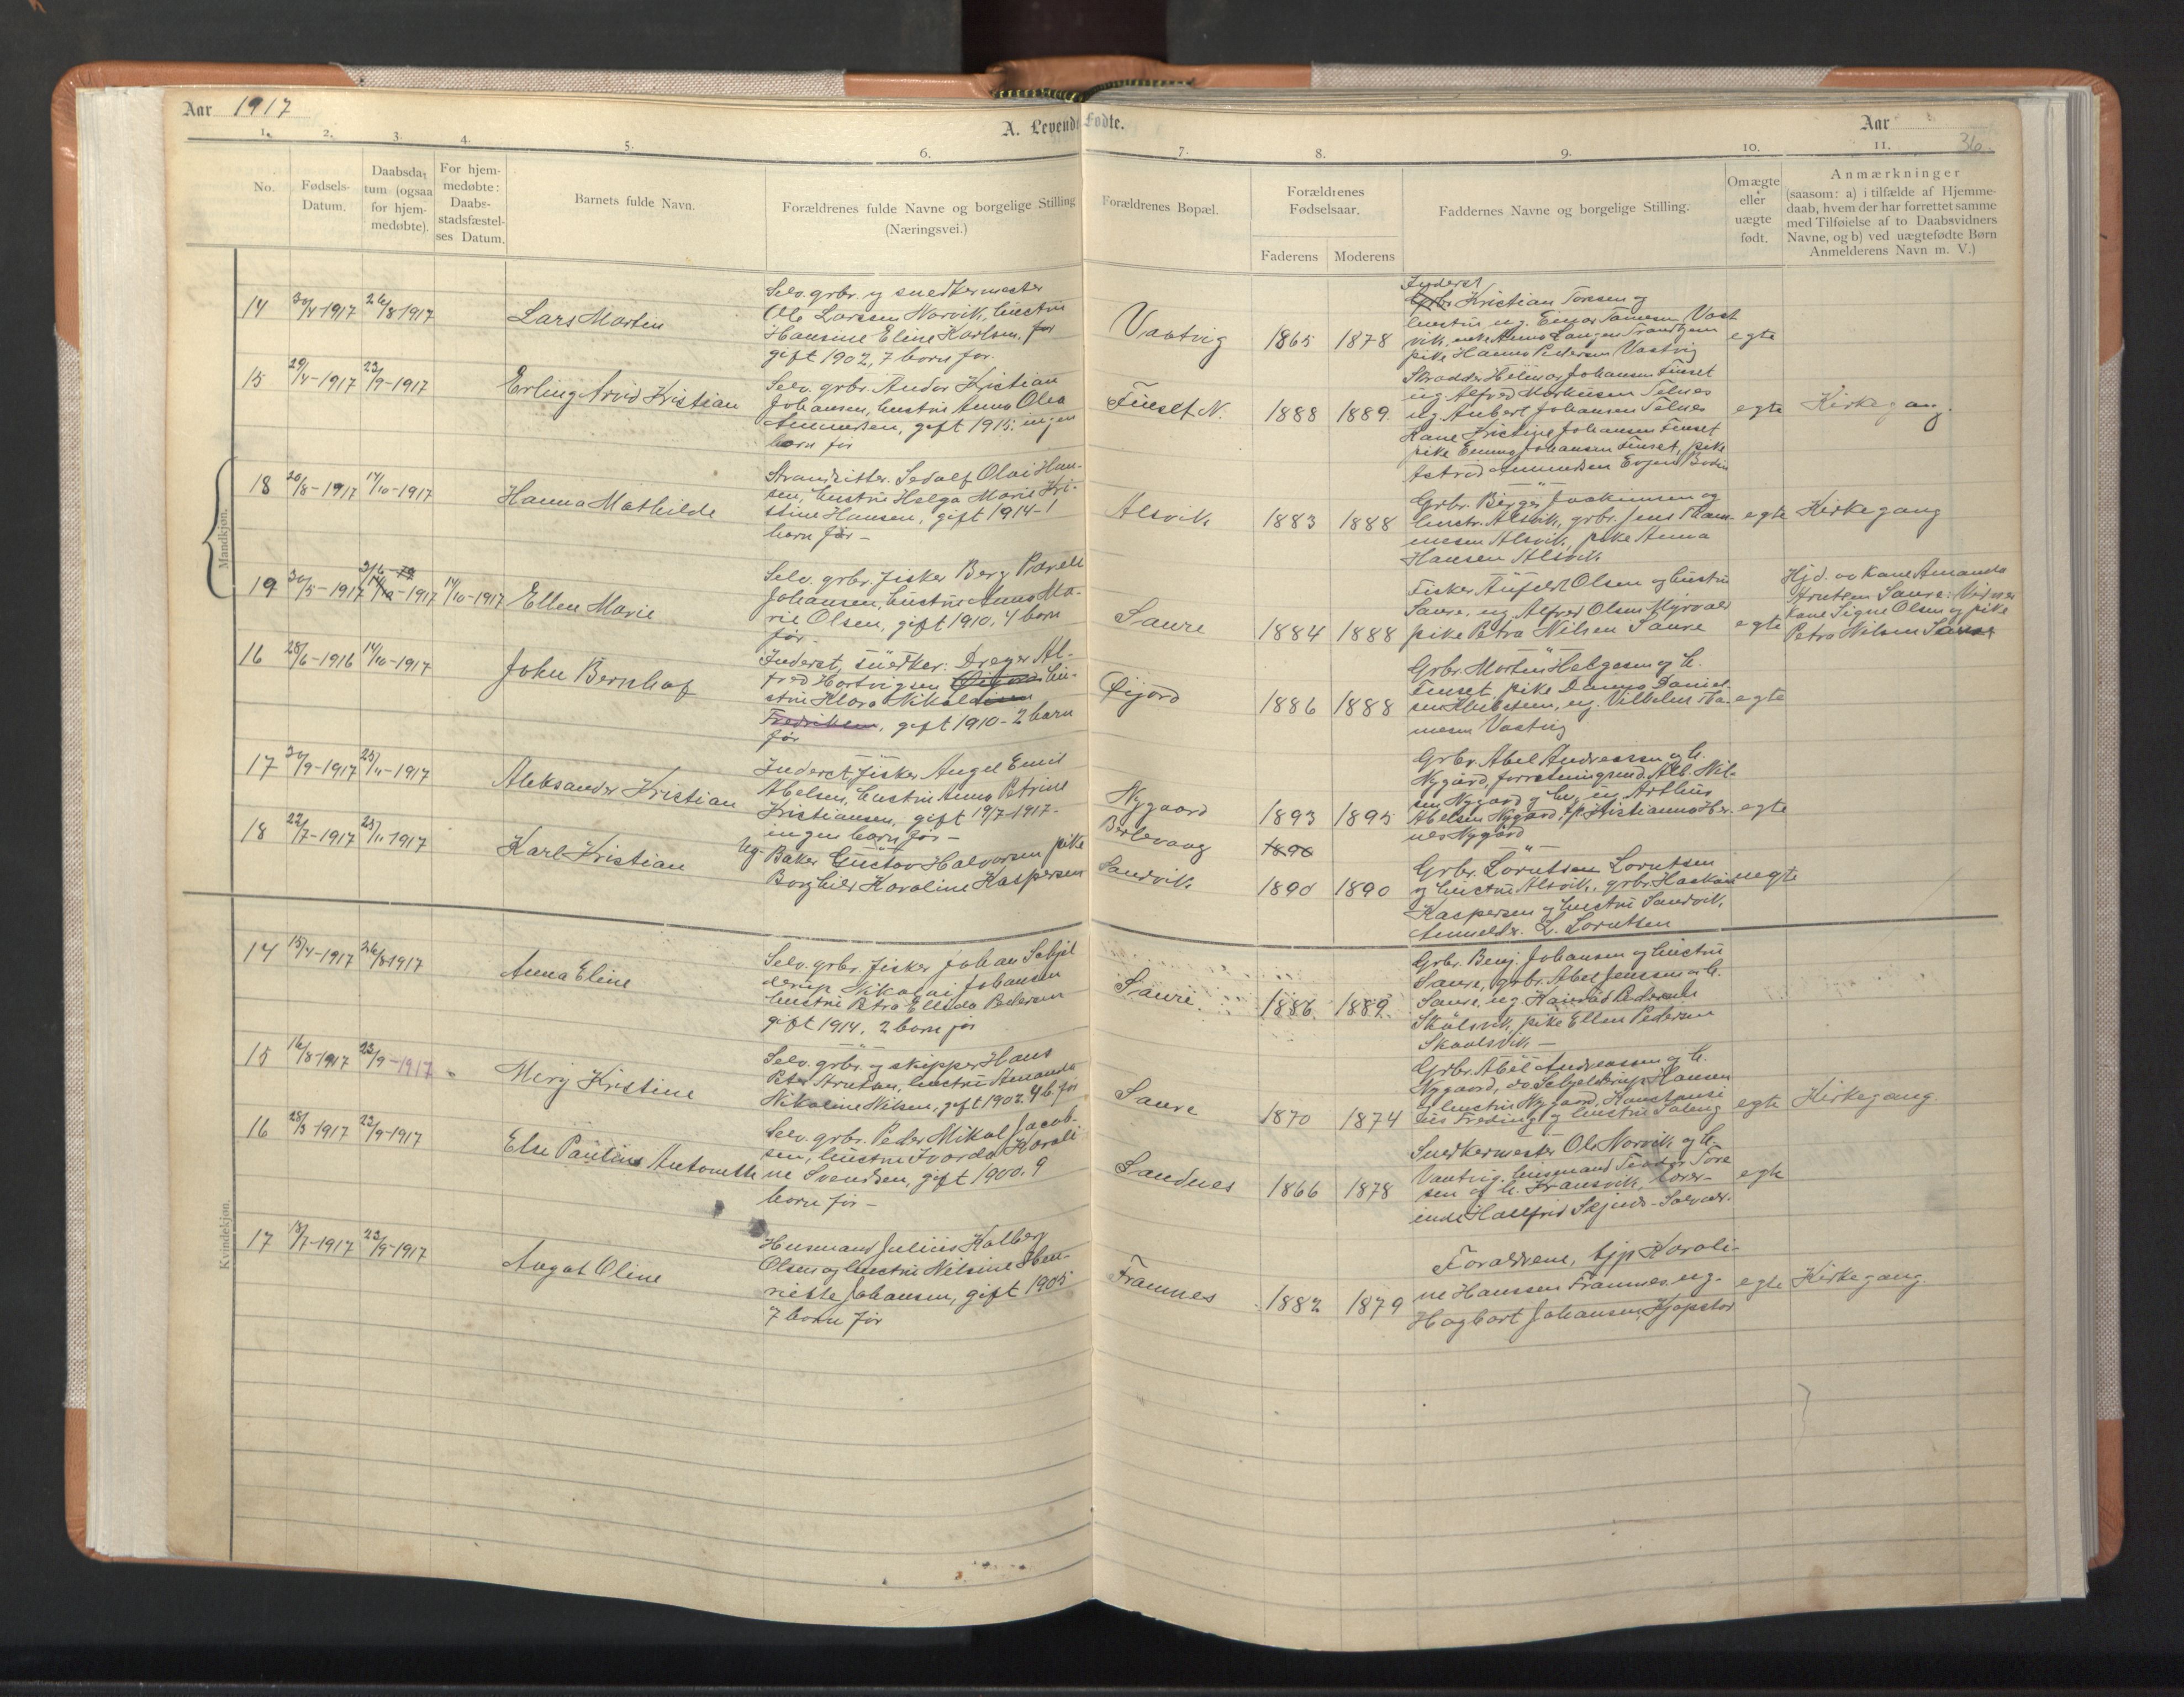 Aar 1917
A. Levende Fødte.
Aar
36.
1. 2. 3. 4. 5. 6. 7. 8. 9. 10. 11.
No.
Fødsels-
Datum.
Daabsda-
tum (ogsaa
for hjem-
medøbte).
For hjem-
medøbte:
Daabs-
stadsfæstel-
ses Datum.
Barnets fulde Navn.
Forældrenes fulde Navne og borgelige Stilling
(Næringsvei.)
Forældrenes Bopæl.
Forældrenes
Fødselsaar.
Faderens Moderens
Faddernes Navne og borgelige Stilling.
Om ægte
eller
uægte
født.
Anmærkninger
(saasom: a) i tilfælde af Hjemme-
daab, hvem der har forrettet samme
med Tilføielse af to Daabsvidners
Navne, og b) ved uægtefødte Børn
Anmelderens Navn m. V.)
Mandkjøn.
14 30/4 1917 26/8 1917 Lars Martin
Selv. grbr. og snedkermester
Ole Larssen Norvik, hustru
Hansine Eline Karlsen, før
gift 1902, 7 born før.
Vastvig 1865 1878
Inderst
Grbr. Kristian Torssen og
hustru, ug. Einar Tønnesen Vast
vik, enke Anna Langen Trondhjem
pike Hanna Pedersen Vastvig
egte
15 29/4-1917 23/9-1917 Erling Arvid Kristian
Selv. grbr. Andor Kristian
Johansen, hustru Anna Olea
Amundsen, gift 1915. ingen
born før
Finset N. 1888 1889
Skrædder Hilmar Johansen Finset
ug. Alfred Markussen Telnes
ug. Anbert Johansen Telnes
Kone Kristine Johansen Finset
pike Emma Johansen Finset, pike
Astrid Amundsen Evjen Bodin
egte Kirkegang.
18 20/8-1917 14/10-1917 Hanna Mathilde
Strandsitter. Sedolf Olai Han-
sen, hustru Helga Marie Kri-
stine Hansen, gift 1914-1
born før-
Alsvik 1883 1888
Grbr. Birger Joakimsen og
hustr. Alsvik, grbr. Jens Tham-
mesen Alsvik, pike Anna
Hansen Alsvik
egte Kirkegang
19 30/5-1917 14/10-1917 14/10-1917 Ellen Marie
Selv. grbr. fisker Berg Pareli
Johansen, hustru Anna Ma-
rie Olsen, gift 1910, 4 born
før-
Saure 1884 1888
Fisker Anfeldt Olsen og hustru
Saure, ug. Alfred Olsen Myrvold
pike Petra Nilsen Saure
egte
Hjd. av Kone Amanda
Arntsen Saure: Vidner
Kone Signe Olsen og pike
Petra Nilsen Saure
16 28/6-1916 14/10-1917 John Bernhof
Inderst, snedker: Dreyer Al-
fred Hartvigsen Øijord hu-
stru Klara Nikoldine
Fredriksen, gift 1910-2 born
før
Øijord 1886 1888
Grbr. Morten Helgesen og h.
Finset, pike Danna Daniel-
sen Hubsteen, ug. Vilhelm Tho-
mesen Vastvig
egte
17 30/9-1917 25/11-1917 Aleksander Kristian
Inderst, fisker Angel Emil
Abelsen, hustru Anna Petrine
Kristiansen, gift 19/7-1917-
ingen born før-
Nygaard 1893 1895
Grbr. Abel Andreassen og h.
Nygård, forretningsmd. Alb. Nil-
sen Nygård og h., ug. Arthur
Abelsen Nygård, tp. Kristianna Her-
nes Nygård
egte
18 22/7-1917 25/11 1917 Karl Kristian
Ug. Baker Gustav Halvorsen pike
Borghild Karoline Kaspersen
Berlevaag
Sandvik
1890
1890 1890
Grbr. Lorntsen Lorntsen
og hustru Alsvik, grbr. Haakon
Kaspersen og hustru Sandvik,
Anmeldr. L. Lorntsen
uegte
Kvindekjøn.
14 15/4-1917 26/8 1917 Anna Eline
Selv. grbr. fisker Johan Schjel
derup Nikolai Johansen
hustru Petra Elisida Pedersen
gift 1914, 2 born før
Saure 1886 1889
Grbr. Benj. Johansen og hustru
Saure, grbr. Abel Jenssen og h.
Saure, ug. Haavald Pedersen
Skålsvik, pike Ellen Pedersen
Skaalsvik-
15 16/8-1917 23/9-1917 Mirj Kristine
Selv. grbr. og skipper Hans
Peter Arntsen, hustru Amanda
Nikoline Nilsen, gift 1902. 4 b. før
Saure 1870 1874
Grbr. Abel Andreassen og h.
Nygaard, do Schjelderup Hansen
og hustru Nygaard, Konstansi
us Freding og hustru Saleng
egte Kirkegang.
16 28/3 1917 23/9-1917 Else Pauline Antonette
Selv. grbr. Peder Mikal Jacob-
sen, hustru Ivarda Karoli
ne Svendsen, gift 1900. 9
born før-
Sandnes 1866 1878
Snedkermester Ole Norvik og h.
Vastvig, husmand Teodor Tore
sen og h. Fransvik, lærer-
inde Halfrid Skjind-Solvær.
egte
17 13/7-1917 23/9-1917 Aagot Oline
Husmand Julius Kolberg
Olsen og hustru Nilsine Hen-
riette Johansen, gift 1905
7 born før
Framnes 1882 1879
Forældrene, tjp. Karoli-
ne Hanssen Framnes, ug.
Hagbart Johansen, Kjøpstad
egte Kirkegang.